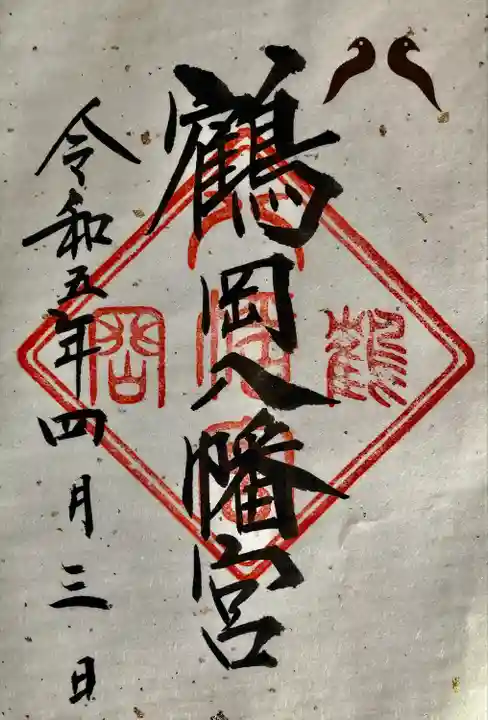 鶴岡八幡宮
令和五年四月三日
鶴
岡